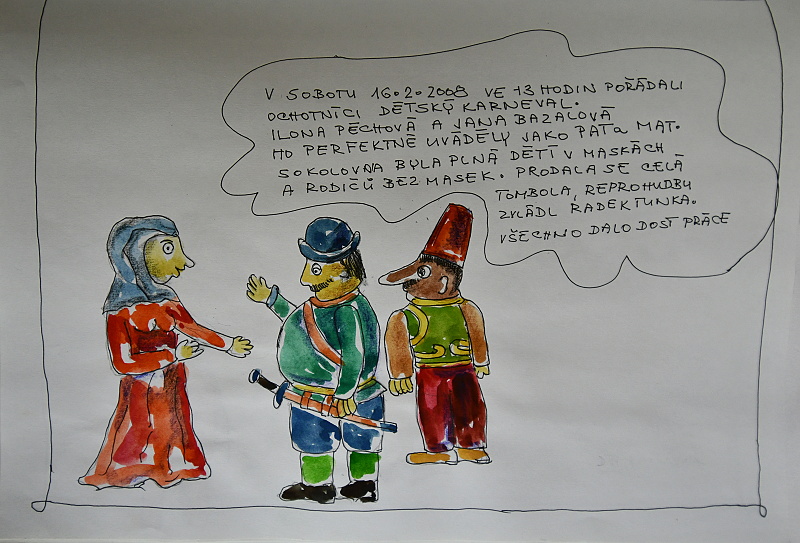 V SOBOTU 16.2.2008 VE 13 HODIN POŘÁDALI
OCHOTNÍCI DĚTSKÝ KARNEVAL.
ILONA PĚCHOVÁ A JANA BAZALOVÁ
HO PERFEKTNĚ UVÁDĚLY JAKO PAT a MAT.
SOKOLOVNA BYLA PLNÁ DĚTÍ V MASKÁCH
A RODIČŮ BEZ MASEK. PRODALA SE CELÁ
TOMBOLA, REPROHUDBU
ZVLÁDL RADEK TUNKA.
VŠECHNO DALO DOST PRÁCE